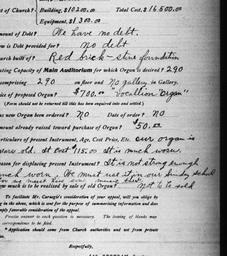 of Church? Building, $10200.00 Total Cost, $16500.00
Equipment, $1300.00
Amount of Debt? We have no debt.
is Debt provided for? no debt
Church built of? Red brick - stone foundation
Seating Capacity of Main Auditorium for which Organ is desired? 290
comprising 290 on floor and No gallery, in Gallery.
Price of proposed Organ? $700.00 "Vocalion Organ"
(Form should not be returned till this has been enquired into and settled.)
new Organ been ordered? NO Date of order? NO
Amount already raised toward purchase of Organ? $50.00
particulars of present Instrument, Age, Cost Price, Etc. our organ is
years old. It cost $115.00 It is much worn.
reason for displacing present Instrument? It is not strong enough
much worn. We must use it in our Sunday School
How much is to be realized by sale of old Organ? Not to be sold
To facilitate Mr. Carnegie's consideration of your appeal, will you oblige by
in the above, which is sent for the purpose of summarizing information and dis-
favorable consideration of the appeal.
Precise answer to each question is necessary. The leaving of blanks may
correspondence to be filed.
* Application should come from Church authorities and not from private
Respectfully,